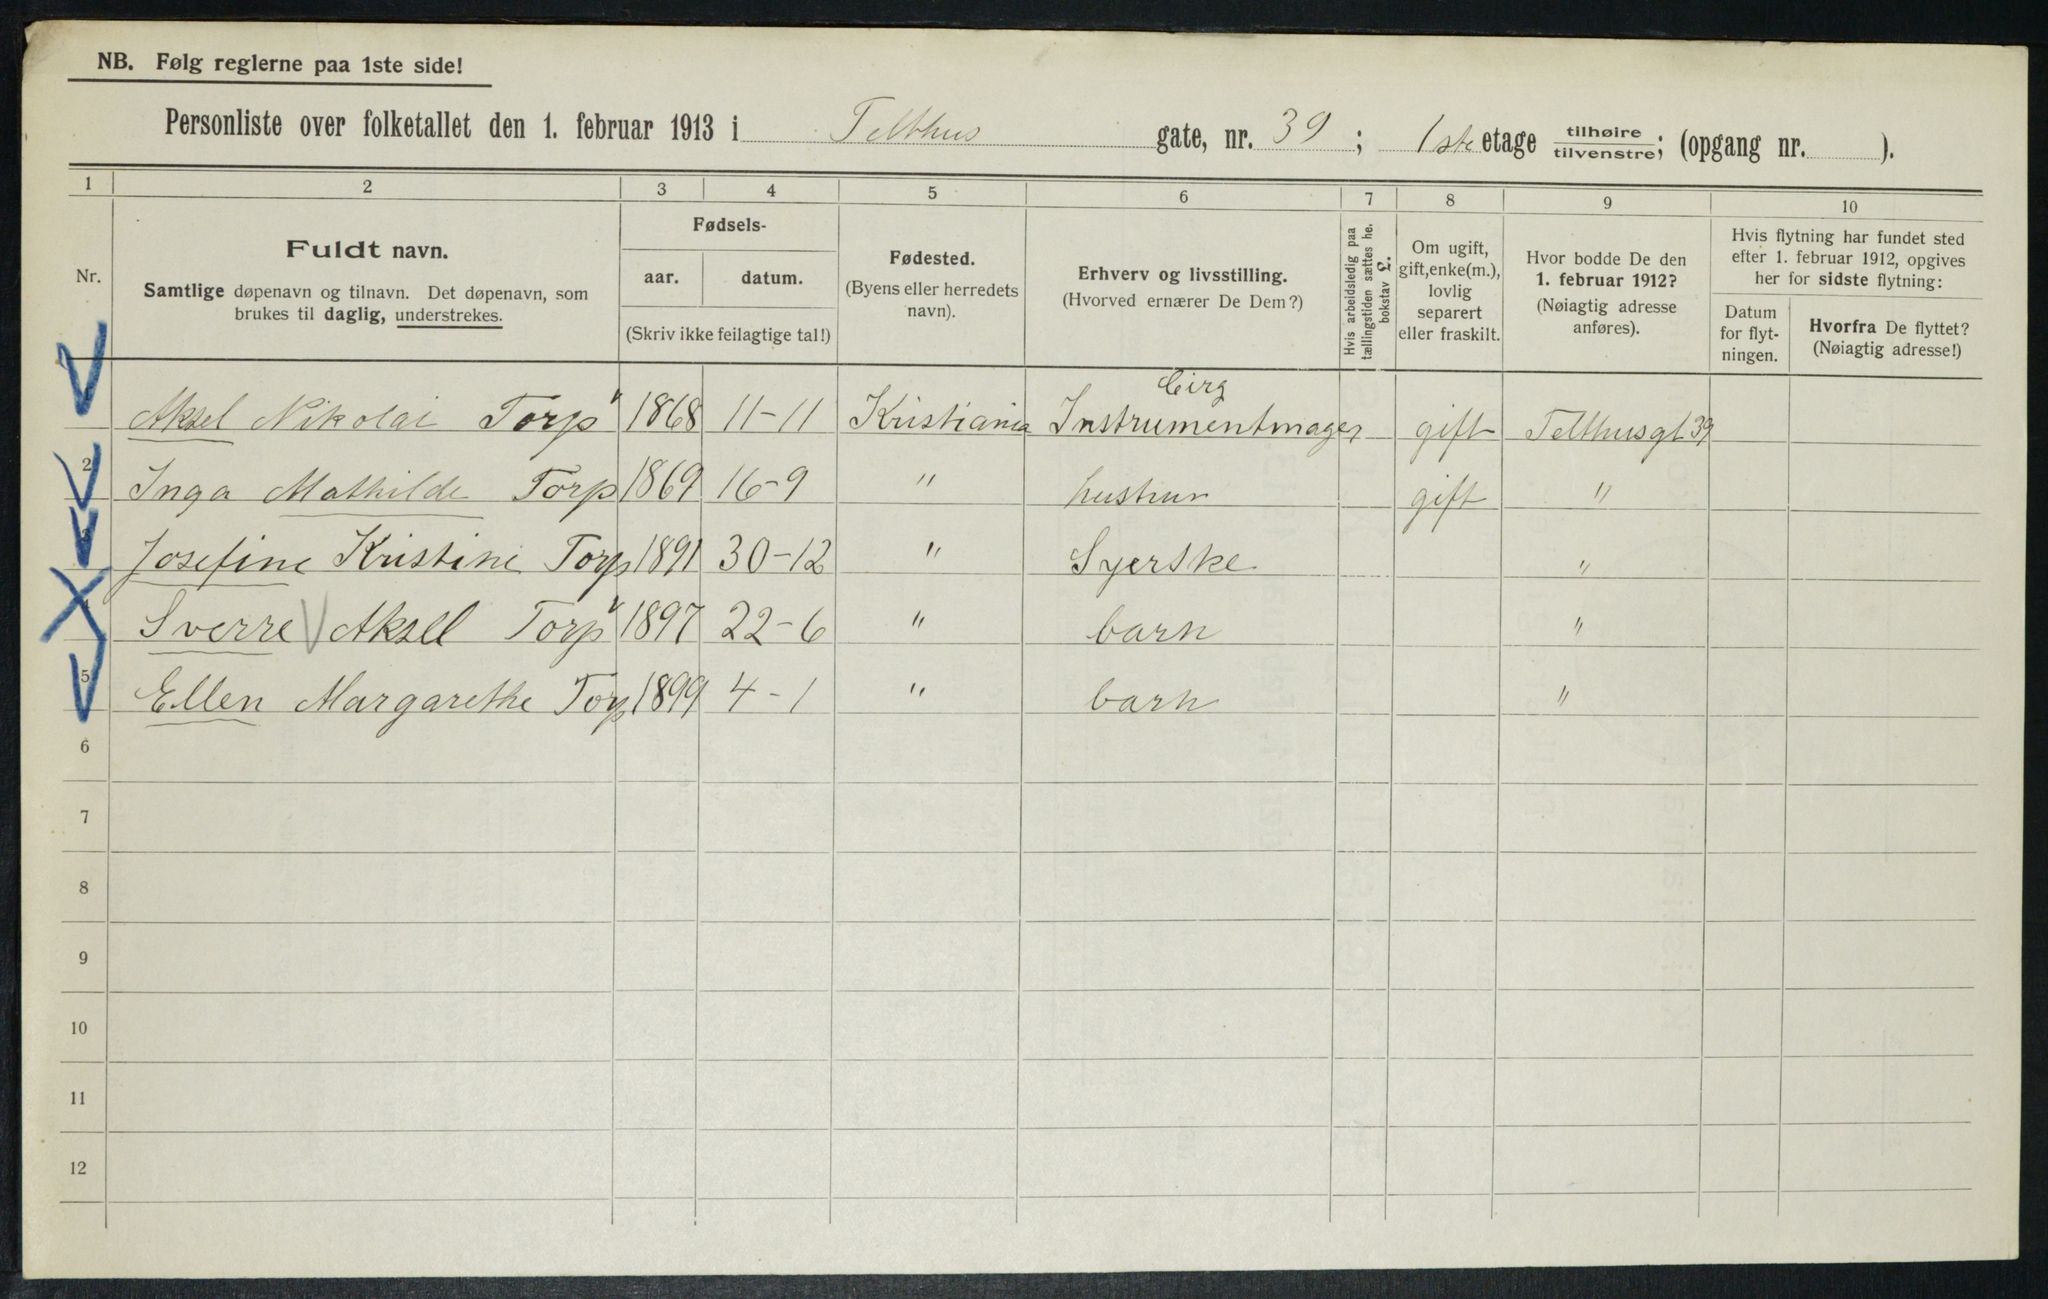 NB. Følg reglerne paa 1ste side!
Personliste over folketallet den 1. februar 1913 i Telthus gate, nr. 39; 1ste etage tilhøire/tilvenstre; (opgang nr. ).
1 2 3 4 5 6 7 8 9 10
Nr.
Fuldt navn.
Samtlige døpenavn og tilnavn. Det døpenavn, som
brukes til daglig, understrekes.
Fødsels-
aar. datum.
(Skriv ikke feilagtige tal!)
Fødested.
(Byens eller herredets
navn).
Erhverv og livsstilling.
(Hvorved ernærer De Dem?)
Hvis arbeidsledig paa
tællingstiden sættes he.
bokstav £.
Om ugift,
gift, enke(m.),
lovlig
separert
eller fraskilt.
Hvor bodde De den
1. februar 1912?
(Nøiagtig adresse
anføres).
Hvis flytning har fundet sted
efter 1. februar 1912, opgives
her for sidste flytning:
Datum
for flyt-
ningen.
Hvorfra De flyttet?
(Nøiagtig adresse!)
Cirg
1 Aksel Nikolai Torp 1868 11-11 Kristiania Instrumentmager gift Telthusgt 39
2 Inga Mathilde Torp 1869 16-9 " hustrur gift "
3 Josefine Kristine Torp 1891 30-12 " Syerske "
4 Sverre Aksel Torp 1897 22-6 " barn "
5 Ellen Margarethe Torp 1899 4-1 " barn "
6
7
8
9
10
11
12